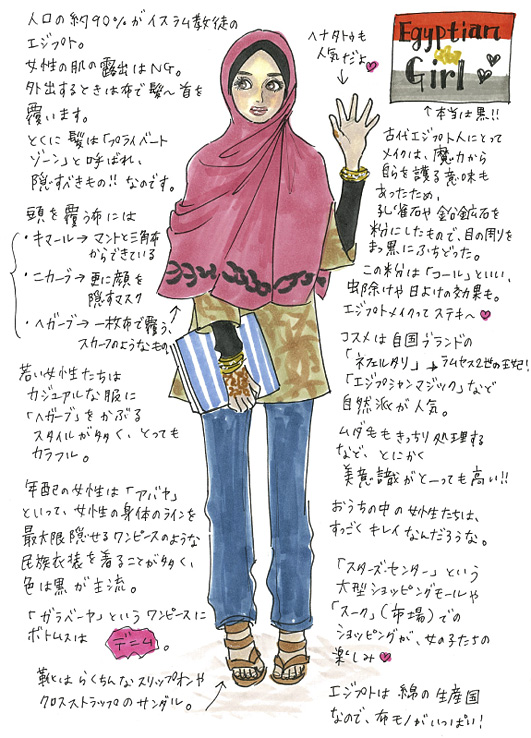 人口の約90%がイスラム教徒の
エジプト。
女性の肌の露出はNG。
外出するときは布で髪〜首を
覆います。
とくに髪は「プライベート
ゾーン」と呼ばれ、
隠すべきもの!!なのです。
頭を覆う布には
・キマール→マントと三角布
からできている
・ニカーブ→更に顔を
隠すマスク
・ヘガーブ→一枚布で覆う、
スカーフのようなもの
若い女性たちは
カジュアルな服に
「ヘガーブ」をかぶる
スタイルが多く、とっても
カラフル。
年配の女性は「アバヤ」
といって、女性の身体のラインを
最大限隠せるワンピースのような
民族衣装を着ることが多く、
色は黒が主流。
「ガラベーヤ」というワンピースに
ボトムスは デニム。
靴はらくちんなスリップオンや
クロスストラップのサンダル。
ヘナタトゥも
人気だよ
Egyptian
Girl
↑本当は黒!!
古代エジプト人にとって
メイクは、魔力から
自らを護る意味も
あったため、
孔雀石や鉛鉱石を
粉にしたもので、目の周りを
まっ黒にふちどった。
この粉は「コール」といい、
虫除けや日よけの効果も。
エジプトメイクってステキ〜
コスメは自国ブランドの
「ネフェルタリ」→ラムセス2世の王妃!
「エジプシャンマジック」など
自然派が人気。
ムダ毛もきっちり処理する
など、とにかく
美意識がとーっても高い!!
おうちの中の女性たちは、
すっごくキレイなんだろうな。
「スターズ・センター」という
大型ショッピングモールや
「スーク」(市場)での
ショッピングが、女の子たちの
楽しみ
エジプトは綿の生産国
なので、布モノがいっぱい!